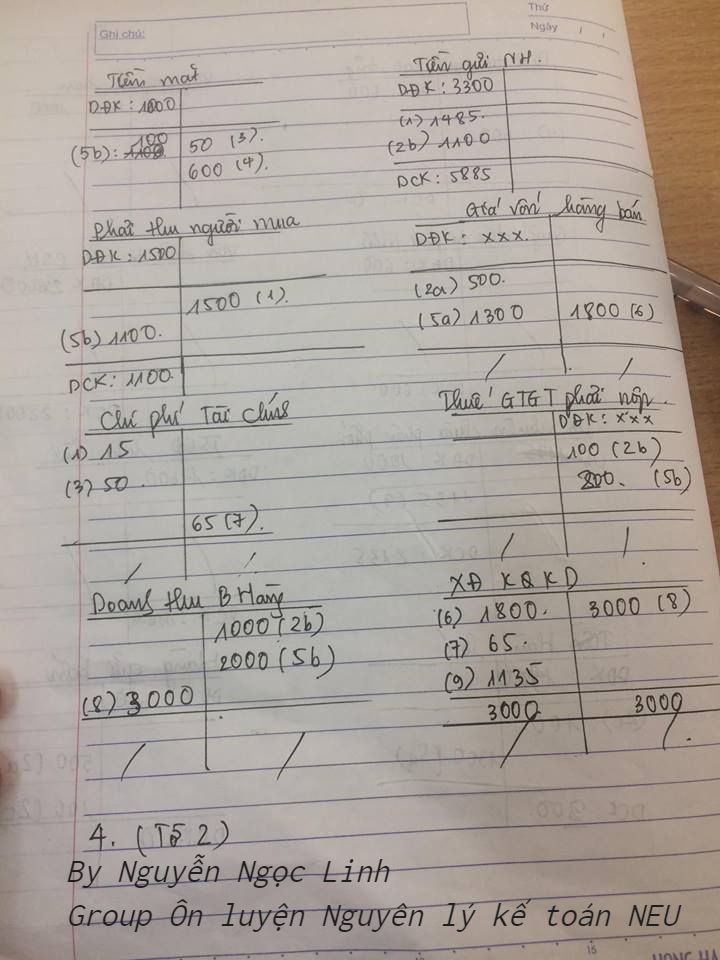 Ghi chú:
Thứ
Ngày / /
Tiền mặt
DĐK: 1000
(5b): 1100 100
50 (3).
600 (4).
Tiền gửi NH.
DĐK: 3300
(1) 1485.
(2b) 1100
DCK: 5885
Phải thu người mua
DĐK: 1500
1500 (1).
(5b) 1100.
DCK: 1100.
Giá vốn hàng bán
DĐK: xxx.
(2a) 500.
(5a) 1300
1800 (6)
Chi phí Tài chính
(1) 15
(3) 50.
65 (7).
Thuế GTGT phải nộp.
DĐK: xxx
100 (2b)
200. (5b)
Doanh thu B Hàng
1000 (2b)
2000 (5b)
(8) 3000
XĐ KQKD
(6) 1800. 3000 (8)
(7) 65.
(9) 1135
3000 3000
4. (Tờ 2)
By Nguyễn Ngọc Linh
Group Ôn luyện Nguyên lý kế toán NEU
15
HONG HA